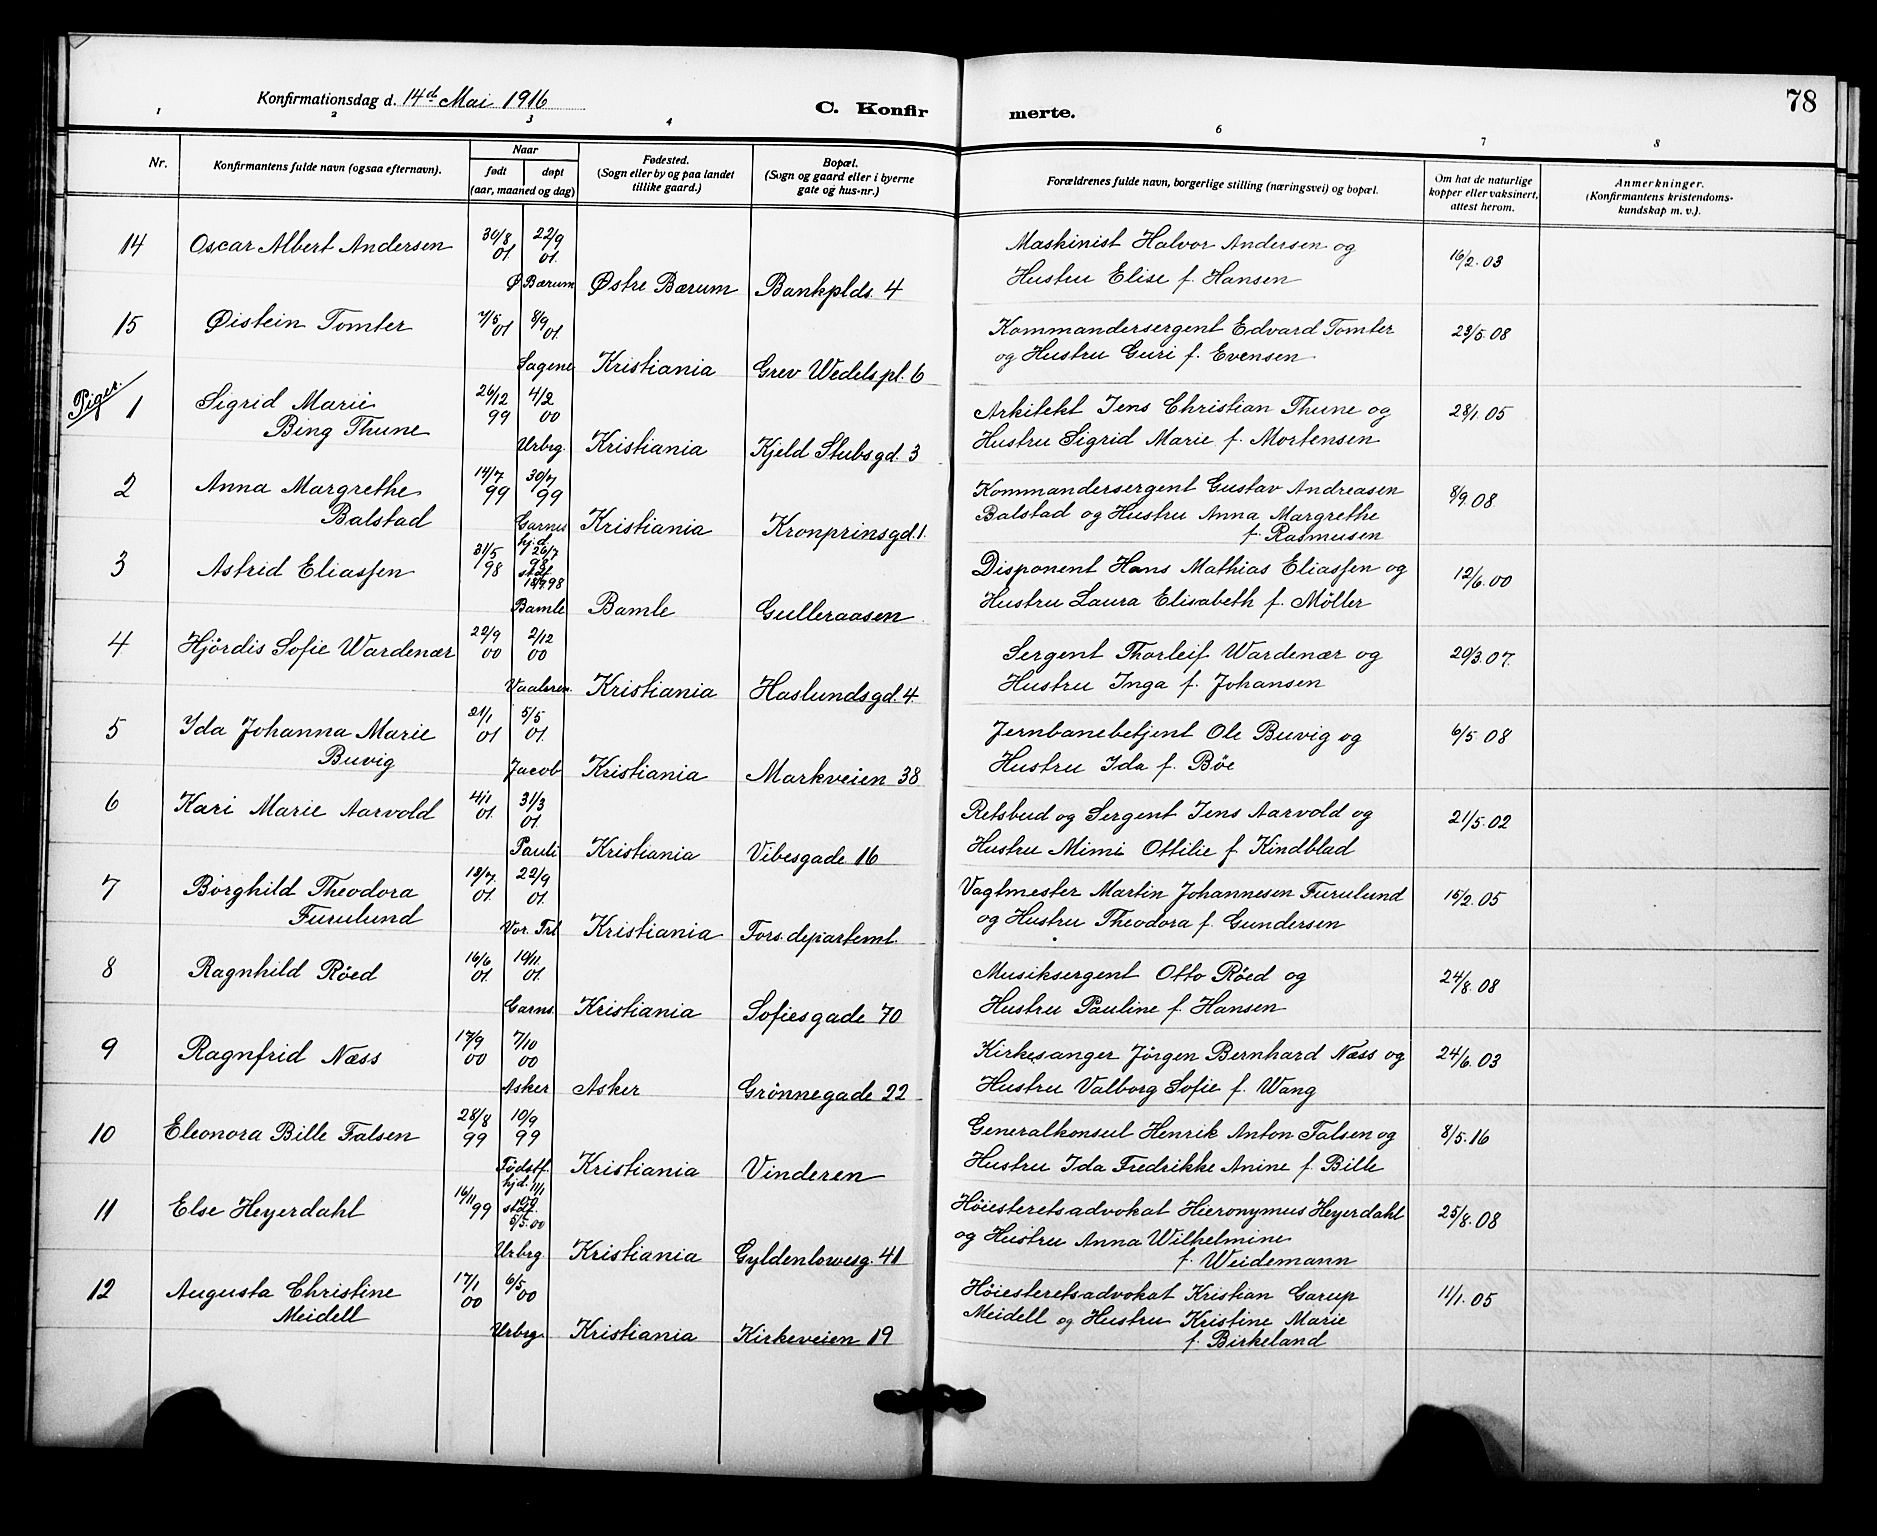 78
Konfirmationsdag d. 14de Mai 1916
C. Konfirmerte.
1 2 3 4 6 7 8
Nr.
Konfirmantens fulde navn (ogsaa efternavn).
Naar
født døpt
(aar, maaned og dag)
Fødested.
(Sogn eller by og paa landet
tillike gaard.)
Bopæl.
(Sogn og gaard eller i byerne
gate og hus-nr.)
Forældrenes fulde navn, borgerlige stilling (næringsvei) og bopæl.
Om hat de naturlige
kopper eller vaksinert,
attest herom.
Anmerkninger.
(Konfirmantens kristendoms-
kundskap m. v.).
14 Oscar Albert Andersen 30/8 22/9 Maskinist Halvor Andersen og 16/2.03
01 01.
Ø Bærum Østre Bærum Bankplds. 4 Hustru Elise f. Hansen
15 Øistein Tomter 7/5 01 8/9 01. Kommandersergent Edvard Tomter 23/5.08
Sagene Kristiania Grev Wedels pl. 6 og Hustru Guri f. Evensen
Piger.
1 Sigrid Marie 26/12 4/2 Arkitekt Jens Christian Thune og 28/1.05
Bing Thune 99 00
Urbrg. Kristiania Kjeld Stubsgd. 3 Hustru Sigrid Marie f. Mortensen
2 Anna Margrethe 14/7 30/7 Kommandersergent Gustav Andreasen 8/9.08
99 99
Balstad Balstad og Hustru Anna Margrethe
Garns Kristiania Kronprinsgd. 1. f. Rasmusen
3 Astrid Eliassen 31/5 98 hj.d. 26/7 98 stdf. 18/9 98 Disponent Hans Mathias Eliassen og 12/6.00
Bamle Bamle Gulleraasen Hustru Laura Elisabeth f. Møller
4 Hjørdis Sofie Wardenær 22/9 2/12 Sergent Thorleif Wardenær og 20/3.07.
00 00
Vaaleren. Kristiania Haslundsgd. 4. Hustru Inga f. Johansen
5 Ida Johanna Marie 21/1 5/5 Jernbanebetjent Ole Buvig og 6/5.08
01 01.
Buvig Jacob Kristiania Markveien 38 Hustru Ida f. Bøe
6 Kari Marie Aarvold 4/1 31/3 Retsbud og Sergent Jens Aarvold og 21/5.02
01. 01.
Pauli Kristiania Vibesgade 16 Hustru Mimi Ottilie f. Kindblad
7 Borghild Theodora 13/7 22/9 Vagtmester Martin Johannesen Furulund 15/2.05
01. 01.
Furulund Vor. Frl Kristiania Fors. departemt. og Hustru Theodora f. Gundersen
8 Ragnhild Røed 16/6 10/11. Musiksergent Otto Røed og 24/8.08
01. 01.
Garns. Kristiania Sofiesgade 70 Hustru Pauline f. Hansen
9 Ragnfrid Næss 17/9 7/10 Kirkesanger Jørgen Bernhard Næss og 24/6.03
00 00
Asker Asker Grønnegade 22 Hustru Valborg Sofie f. Wang
10 Eleonora Bille Falsen 28/8 10/9 Generalkonsul Henrik Anton Falsen og 8/5.16
99 99
Fødstf. Kristiania Vinderen Hustru Ida Fredrikke Anine f. Bille
11 Else Heyerdahl 16/11 99 hj.d. 11/1 00 stdf. 5/5.00 Høiesteretsadvokat Hieronymus Heyerdahl 25/8.08
og Hustru Anna Wilhelmine
Urbrg Kristiania Gyldenlowesg. 41 f. Weidemann
12 Augusta Christine 17/1 6/5 Høiesteretsadvokat Kristian Garup 11/1.05
00 00
Meidell Meidell og Hustru Kristine Marie
Urbrg. Kristiania Kirkeveien 19 f. Birkeland